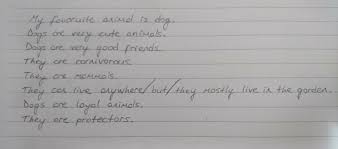 My favoruite animal is dog.
Dogs are very cute animals.
Dogs are very good friends.
They are carnivorous.
They are mammals.
They can live anywhere/but/they mostly live in the garden.
Dogs are loyal animals.
They are protectors.